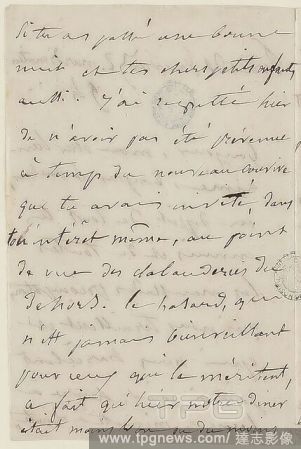 Si tu as passé une bonne
nuit et tes chers petits enfants
aussi. J'ai regretté hier
de n'avoir pas été prévenue
à temps du nouveau convive
que tu avais invité, dans
ton intérêt même, au point
de vue des clabauderies du
dehors. Le hasard, qui
n'est jamais bienveillant
pour ceux qui le méritent,
a fait qu'hier notre diner
était moins bon ou du moins
TPG
www.tpgnews.com / 達志影像